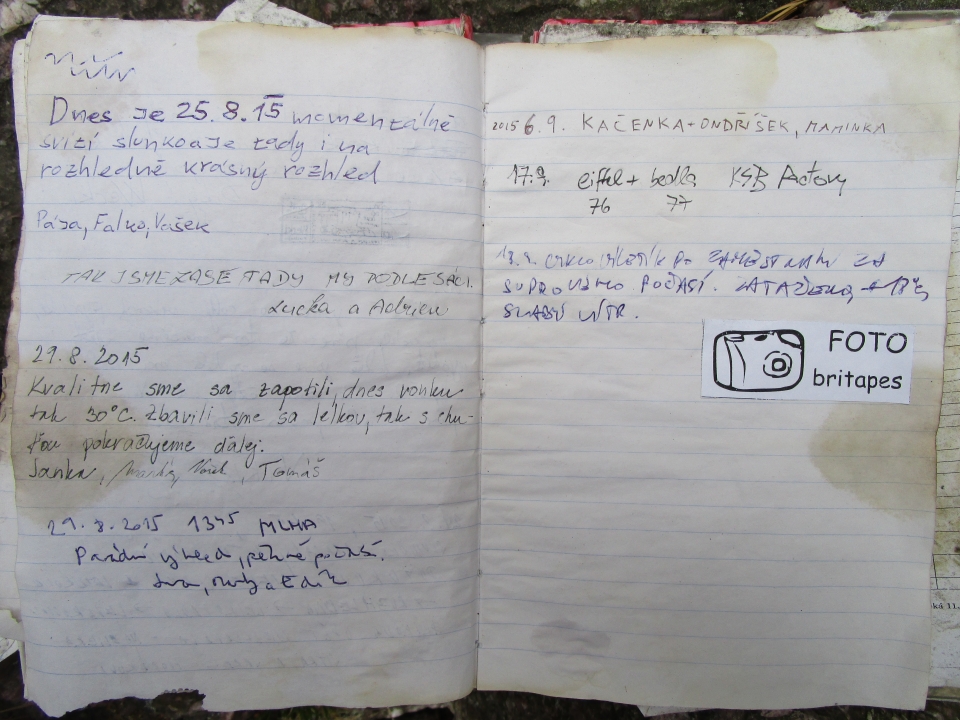 Dnes je 25.8.15 momentálně
svítí slunko a je tady i na
rozhledně krásný rozhled
Pája, Falko, Vašek
TAK JSME ZASE TADY MY PODLESÁCI.
Lucka a Adrien
29.8.2015
Kvalitne sme sa zapotili, dnes vonku
tak 30°C. Zbavili sme sa lélkov, tak s chu-
ťou pokračujeme ďalej.
Janka, Tomáš
29.8.2015 1345 MLHA
Parádní výhled, pěkné počasí.
2015 6.9. KAČENKA + ONDŘÍŠEK, MAMINKA
17.9. eiffel + bedla
76 77
PO ZAMĚSTNÁNÍ ZA
POČASÍ. ZATAŽENO, + 18°C
SLABÝ VÍTR.
FOTO
britapes